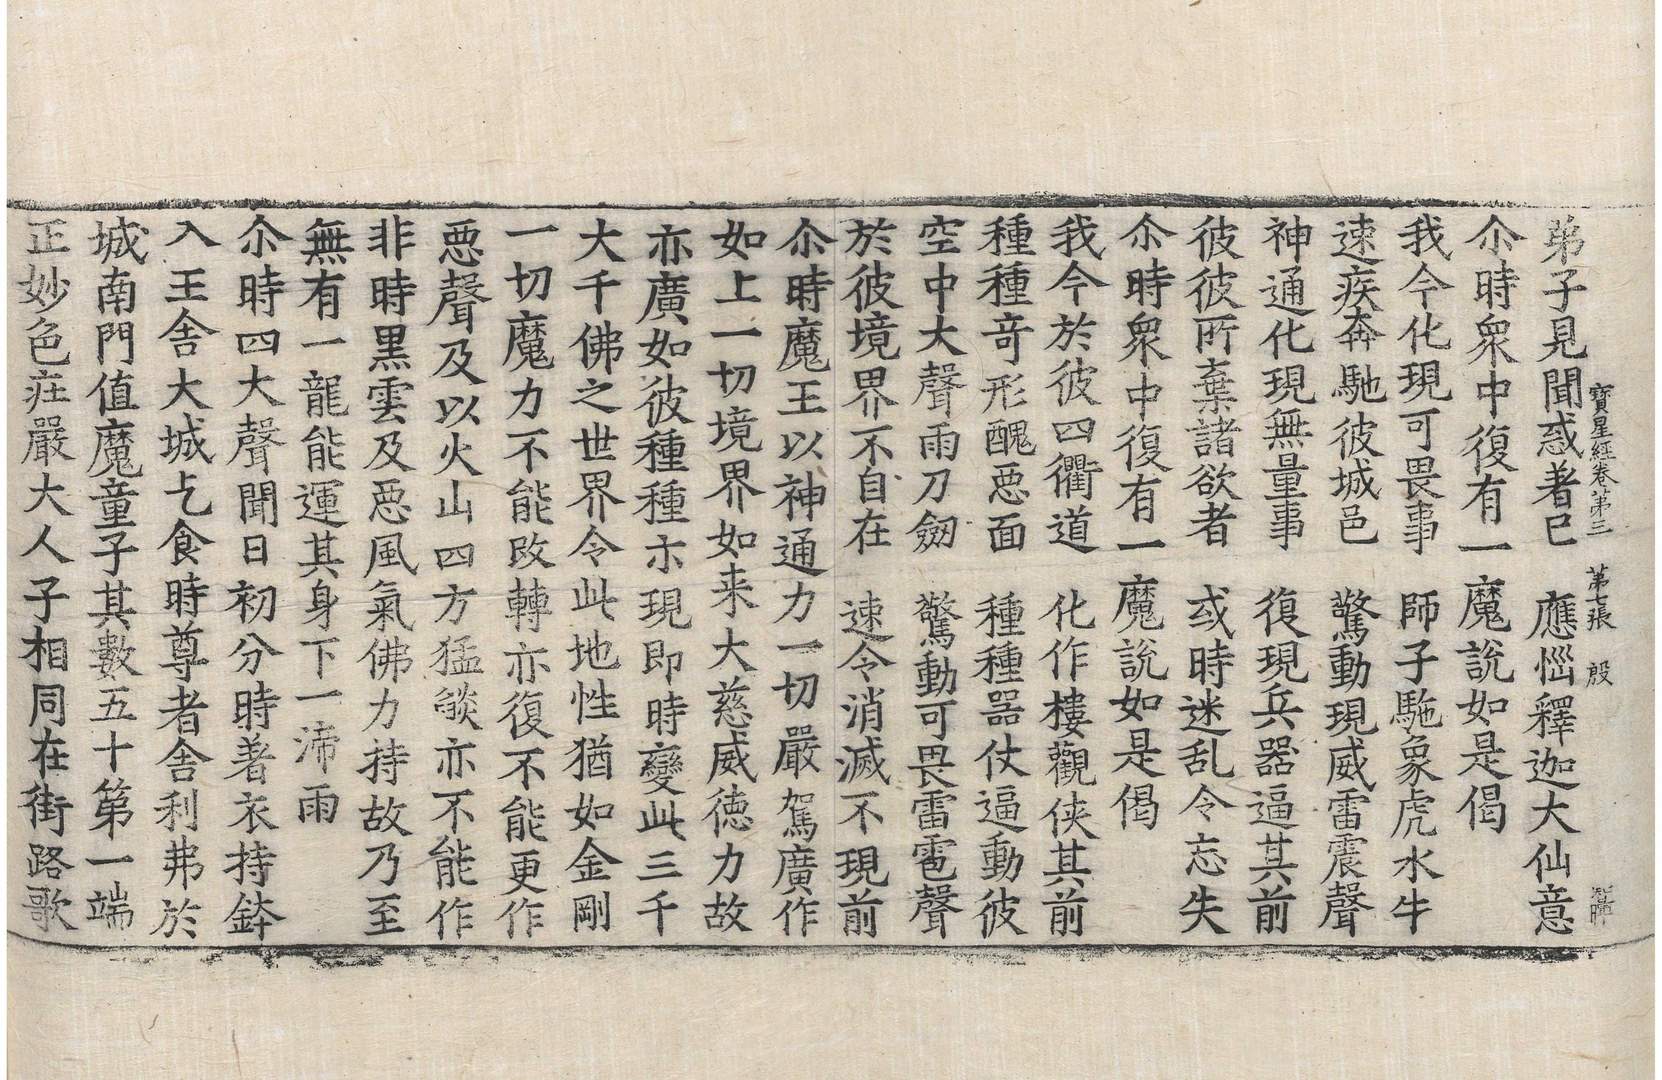 寶星經卷第三　第七張　殷
弟子見聞惑著已　應惱釋迦大仙意
尒時眾中復有一魔說如是偈
我今化現可畏事　師子駞象虎水牛
速疾奔馳彼城邑　驚動現威雷震聲
神通化現無量事　復現兵器逼其前
彼彼所棄諸欲者　或時迷乱令忘失
尒時眾中復有一魔說如是偈
我今於彼四衢道　化作樓觀俠其前
種種奇形醜惡面　種種器仗逼動彼
空中大聲雨刀劒　驚動可畏雷雹聲
於彼境界不自在　速令消滅不現前
尒時魔王以神通力一切嚴駕廣作
如上一切境界如来大慈威德力故
亦廣如彼種種示現即時變此三千
大千佛之世界令此地性猶如金剛
一切魔力不能改轉亦復不能更作
惡聲及以火山四方猛燄亦不能作
非時黑雲及惡風氣佛力持故乃至
無有一龍能運其身下一渧雨
尒時四大聲聞日初分時著衣持鉢
入王舍大城乞食時尊者舍利弗於
城南門值魔童子其數五十第一端
正妙色莊嚴大人子相同在街路歌